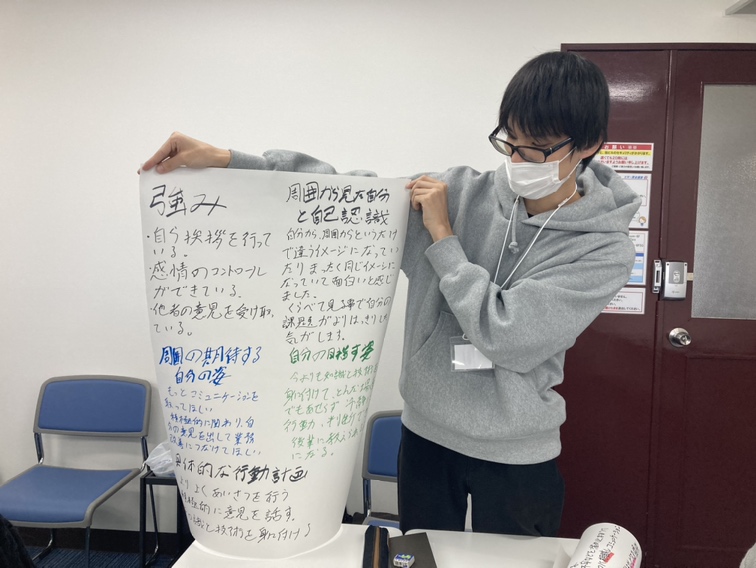 強み
・自ら挨拶を行って
いる。
・感情のコントロール
ができている。
・他者の意見を受け取っ
ている。
周囲の期待する
自分の姿
もっとコミュニケーションを
取ってほしい
積極的に関わり、自
分の意見を出して業務
改善につなげてほしい
具体的な行動計画
よりよくあいさつを行う
積極的に意見を話す。
知識と技術を身に付ける
周囲から見た自分
と自己認識
自分から、周囲からというだけ
で違うイメージになってい
たりまったく同じイメージに
なっていて面白いと感じ
ました。
くらべて見る事で自分の
課題点がよりはっきりした
気がします。
自分の目指す姿
今よりも知識と技術を
身に付けて、どんな
でもあせらず 冷静
行動
後輩に教えられる
になる。
お願い